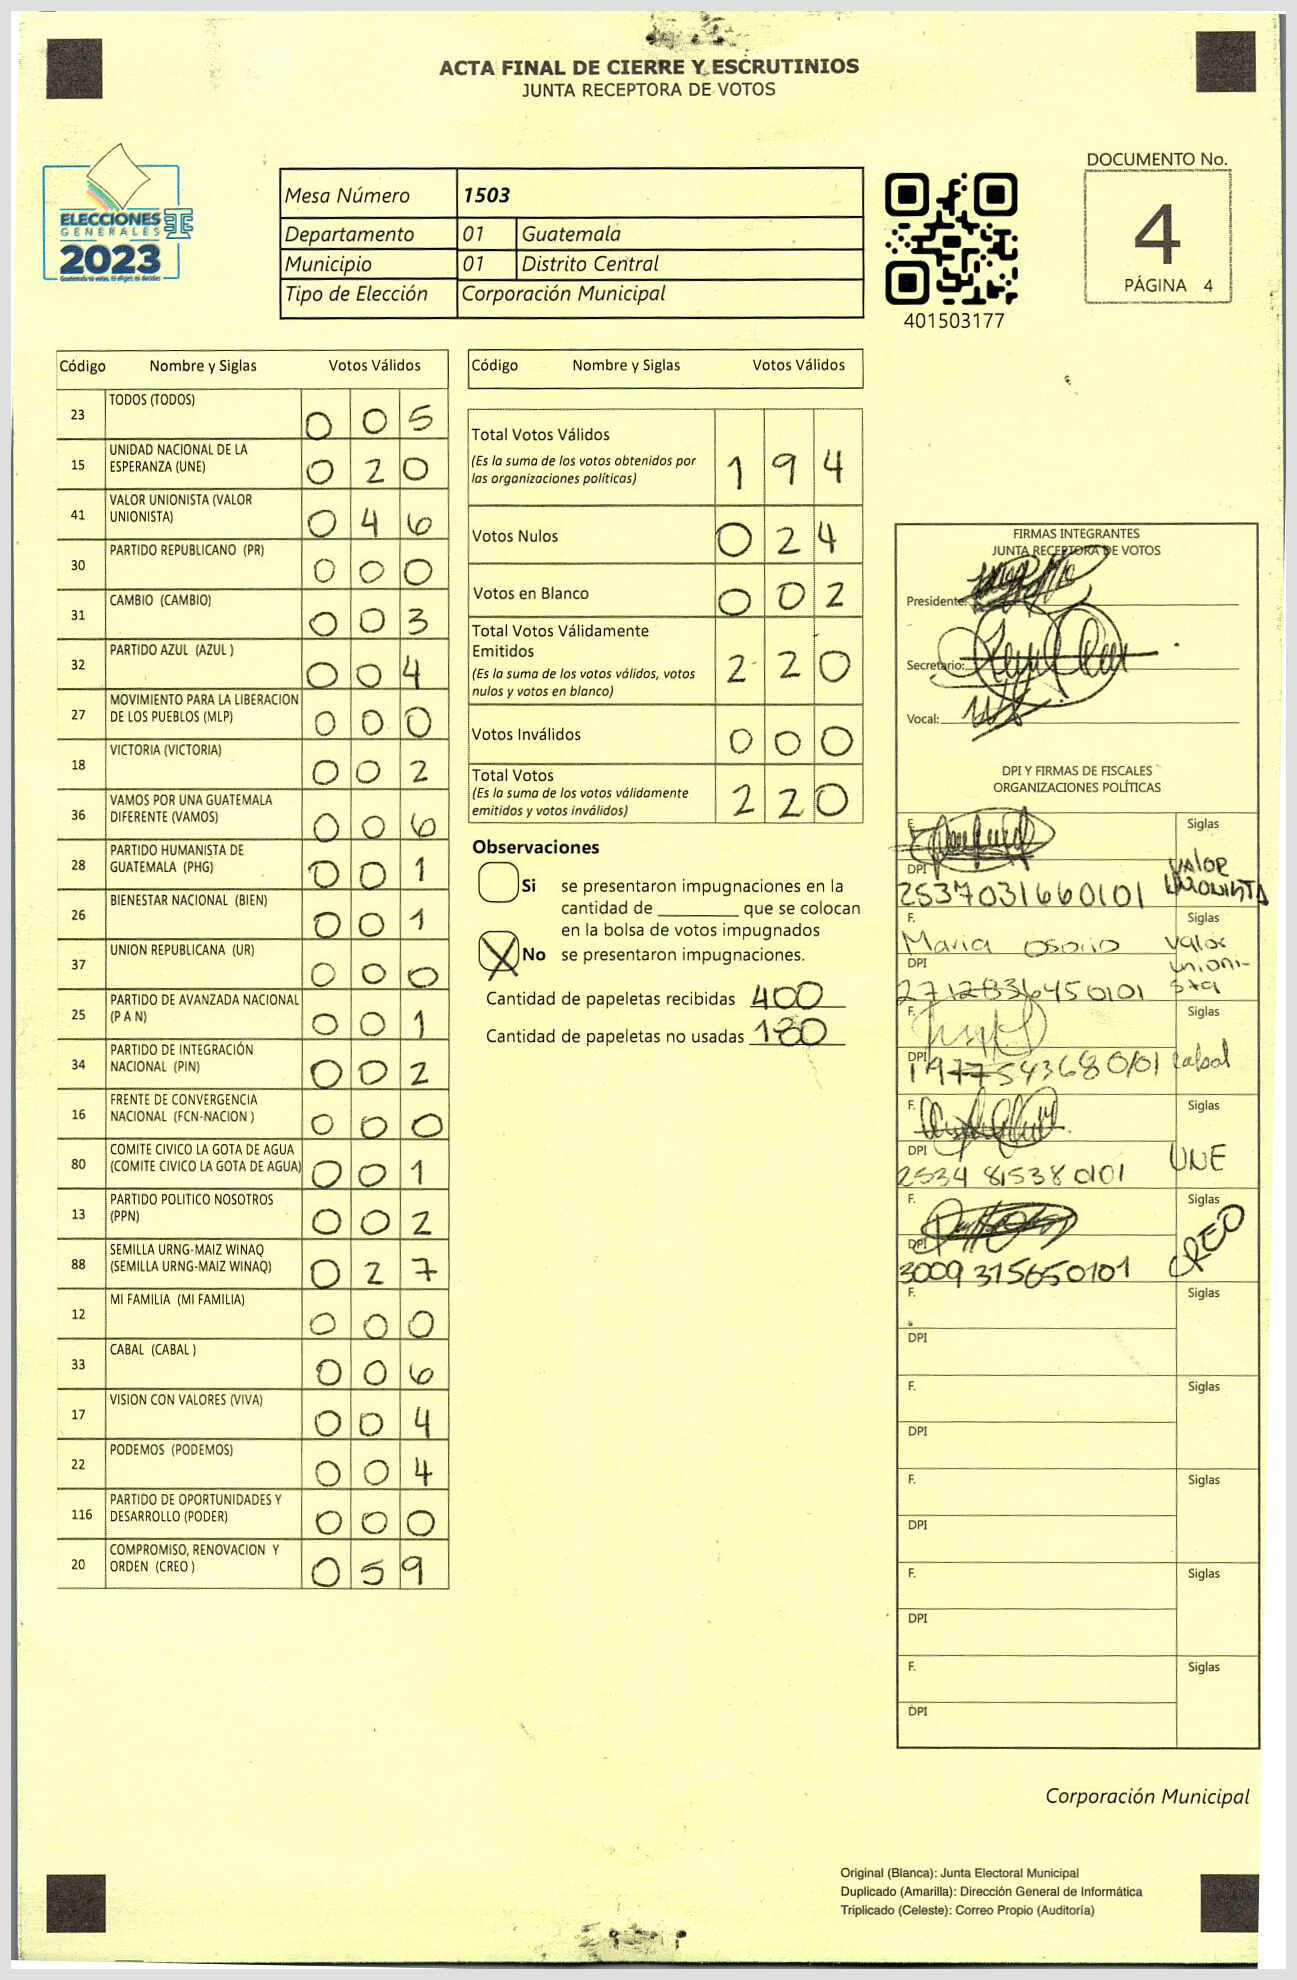 ACTA FINAL DE CIERRE Y ESCRUTINIOS
JUNTA RECEPTORA DE VOTOS
ELECCIONES
GENERALES
2023
Mesa Número 1503
Departamento 01 Guatemala
Municipio 01 Distrito Central
Tipo de Elección Corporación Municipal
401503177
DOCUMENTO No.
4
PÁGINA 4
Código Nombre y Siglas Votos Válidos
23 TODOS (TODOS) 0 0 5
15 UNIDAD NACIONAL DE LA
ESPERANZA (UNE) 0 2 0
41 VALOR UNIONISTA (VALOR
UNIONISTA) 0 4 6
30 PARTIDO REPUBLICANO (PR) 0 0 0
31 CAMBIO (CAMBIO) 0 0 3
32 PARTIDO AZUL (AZUL ) 0 0 4
27 MOVIMIENTO PARA LA LIBERACION
DE LOS PUEBLOS (MLP) 0 0 0
18 VICTORIA (VICTORIA) 0 0 2
36 VAMOS POR UNA GUATEMALA
DIFERENTE (VAMOS) 0 0 6
28 PARTIDO HUMANISTA DE
GUATEMALA (PHG) 0 0 1
26 BIENESTAR NACIONAL (BIEN) 0 0 1
37 UNION REPUBLICANA (UR) 0 0 0
25 PARTIDO DE AVANZADA NACIONAL
(P A N) 0 0 1
34 PARTIDO DE INTEGRACIÓN
NACIONAL (PIN) 0 0 2
16 FRENTE DE CONVERGENCIA
NACIONAL (FCN-NACION ) 0 0 0
80 COMITE CIVICO LA GOTA DE AGUA
(COMITE CIVICO LA GOTA DE AGUA) 0 0 1
13 PARTIDO POLITICO NOSOTROS
(PPN) 0 0 2
88 SEMILLA URNG-MAIZ WINAQ
(SEMILLA URNG-MAIZ WINAQ) 0 2 7
12 MI FAMILIA (MI FAMILIA) 0 0 0
33 CABAL (CABAL ) 0 0 6
17 VISION CON VALORES (VIVA) 0 0 4
22 PODEMOS (PODEMOS) 0 0 4
116 PARTIDO DE OPORTUNIDADES Y
DESARROLLO (PODER) 0 0 0
20 COMPROMISO, RENOVACION Y
ORDEN (CREO ) 0 5 9
Código Nombre y Siglas Votos Válidos
Total Votos Válidos
(Es la suma de los votos obtenidos por
las organizaciones políticas) 1 9 4
Votos Nulos 0 2 4
Votos en Blanco 0 0 2
Total Votos Válidamente
Emitidos
(Es la suma de los votos válidos, votos
nulos y votos en blanco) 2 2 0
Votos Inválidos 0 0 0
Total Votos
(Es la suma de los votos válidamente
emitidos y votos inválidos) 2 2 0
Observaciones
Si se presentaron impugnaciones en la
cantidad de ________ que se colocan
en la bolsa de votos impugnados
X No se presentaron impugnaciones.
Cantidad de papeletas recibidas 400
Cantidad de papeletas no usadas 180
FIRMAS INTEGRANTES
JUNTA RECEPTORA DE VOTOS
Presidente:
Secretario:
Vocal:
DPI Y FIRMAS DE FISCALES
ORGANIZACIONES POLÍTICAS
F. Siglas
DPI VALOR
2537031660101 UNIONISTA
F. Siglas
Maria Osorio Valor
DPI unioni-
2712836450101 sta
F. Siglas
DPI
1977543680101 Cabal
F. Siglas
DPI UNE
2534 815380101
F. Siglas
DPI CREO
3009 315650101
F. Siglas
DPI
F. Siglas
DPI
F. Siglas
DPI
F. Siglas
DPI
F. Siglas
DPI
Corporación Municipal
Original (Blanca): Junta Electoral Municipal
Duplicado (Amarilla): Dirección General de Informática
Triplicado (Celeste): Correo Propio (Auditoría)